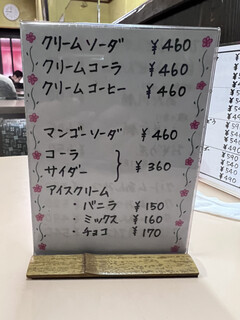 クリームソーダ ￥460
クリームコーラ ￥460
クリームコーヒー ￥460
マンゴーソーダ ￥460
コーラ
サイダー } ￥360
アイスクリーム
・バニラ ￥150
・ミックス ￥160
・チョコ ￥170